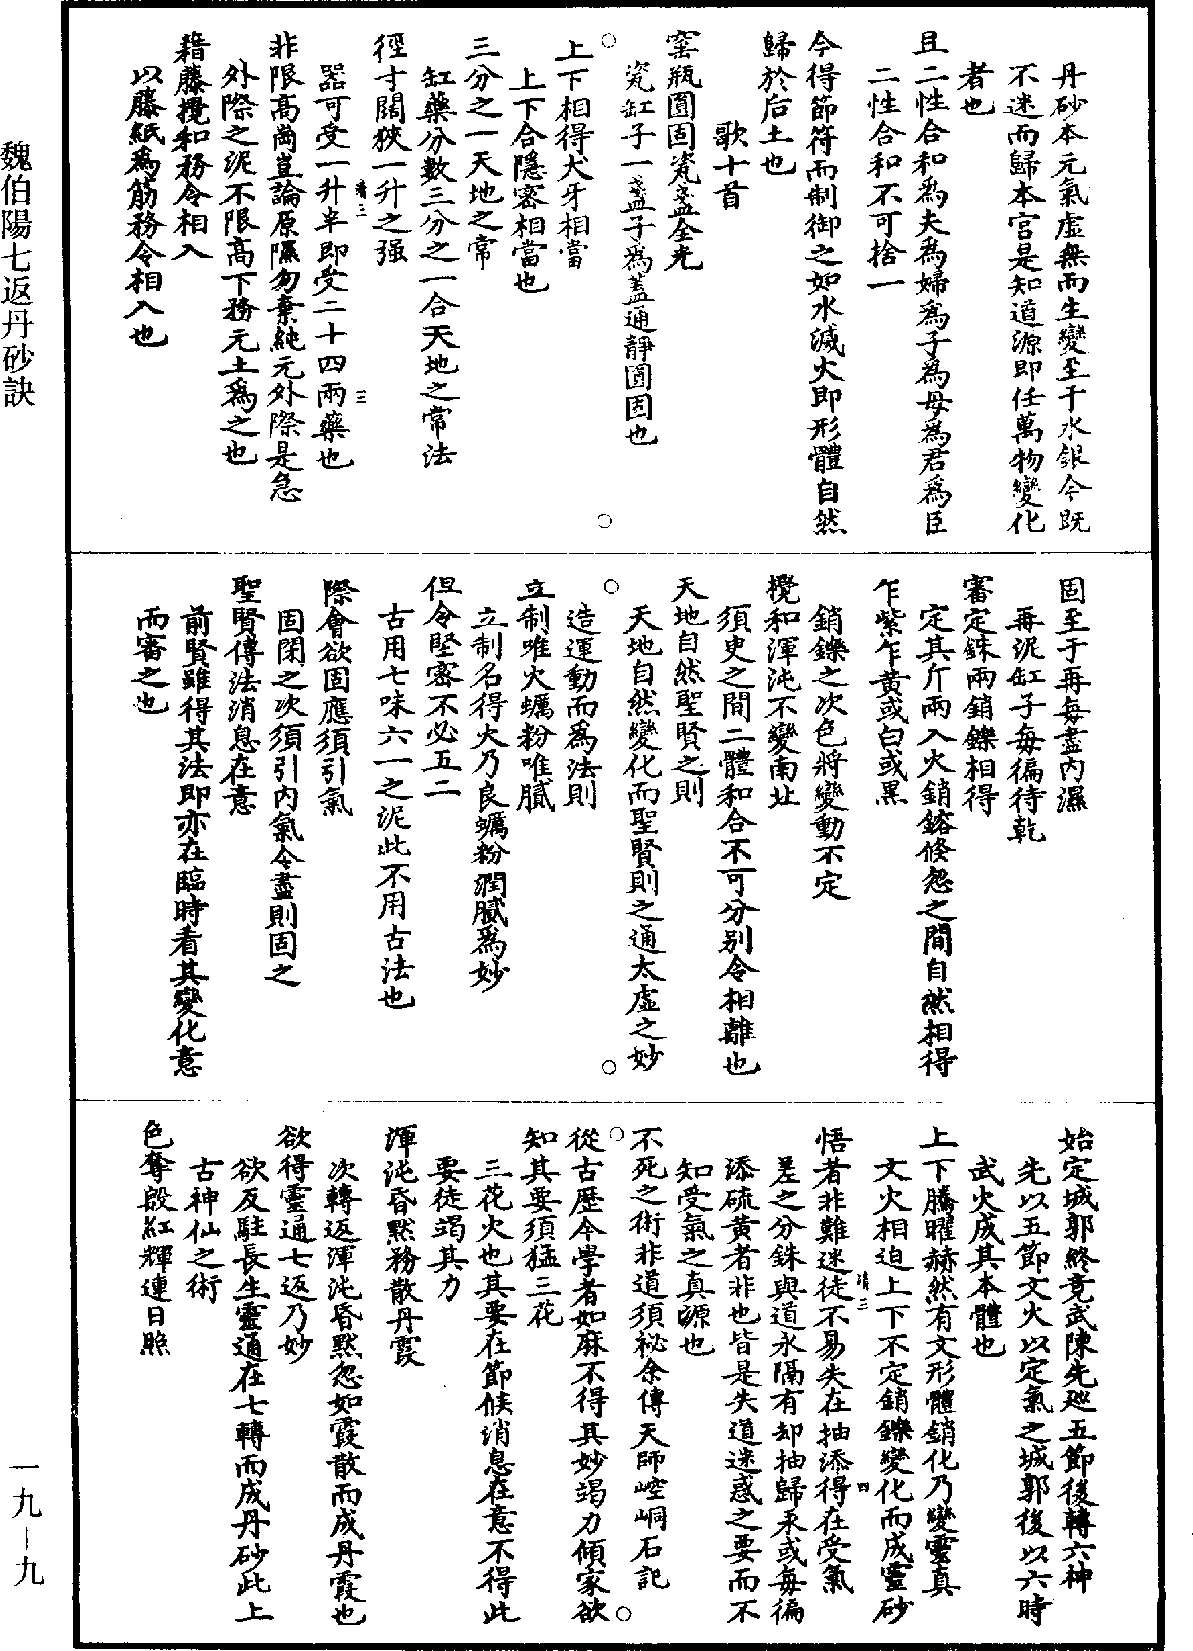 丹砂本元氣虛無而生變至于水銀今既
不迷而歸本官是知道源即任萬物變化
者也
且二性合和為夫為婦為子為母為君為臣
二性合和不可捨一
今得節符而制御之如水滅火即形體自然
歸於后土也
歌十首
窯瓶圓固瓷盞全光
瓷缸子一盞子為蓋通靜圓固也
上下相得犬牙相當
上下合隱密相當也
三分之一天地之常
缸藥分數三分之一合天地之常法
徑寸闊狹一升之强
器可受一升半即受二十四兩藥也
非限高崗豈論原隰勿棄純元外際是急
外際之泥不限高下務元土為之也
藉藤攪和務令相入
以藤紙為筋務令相入也
固至于再每盡內濕
再泥缸子每徧待乾
審定銖兩銷鑠相得
定其斤兩入火銷鎔倏忽之間自然相得
乍紫乍黃或白或黑
銷鑠之次色將變動不定
攪和渾沌不變南北
須臾之間二體和合不可分别令相離也
天地自然聖賢之則
天地自然變化而聖賢則之通太虛之妙
造運動而為法則
立制唯火蠣粉唯膩
立制名得火乃良蠣粉潤膩為妙
但令堅密不必五二
古用七味六一之泥此不用古法也
際會欲固應須引氣
固閉之次須引內氣令盡則固之
聖賢傳法消息在意
前賢雖得其法即亦在臨時看其變化意
而審之也
始定城郭終竟武陳先巡五節後轉六神
先以五節文火以定氣之城郭後以六時
武火成其本體也
上下騰曜赫然有文形體銷化乃變靈真
文火相迫上下不定銷鑠變化而成靈砂
悟者非難迷徒不易失在抽添得在受氣
差之分銖與道永隔有却抽歸汞或每徧
添硫黃者非也皆是失道迷惑之要而不
知受氣之真源也
不死之術非道須祕余傳天師崆峒石記
從古歷今學者如麻不得其妙竭力傾家欲
知其要須猛三花
三花火也其要在節候消息在意不得此
要徒竭其力
渾沌昏默務散丹霞
次轉返渾沌昏默忽如霞散而成丹霞也
欲得靈通七返乃妙
欲反駐長生靈通在七轉而成丹砂此上
古神仙之術
色奪殷紅輝連日照
魏伯陽七返丹砂訣
一九–九